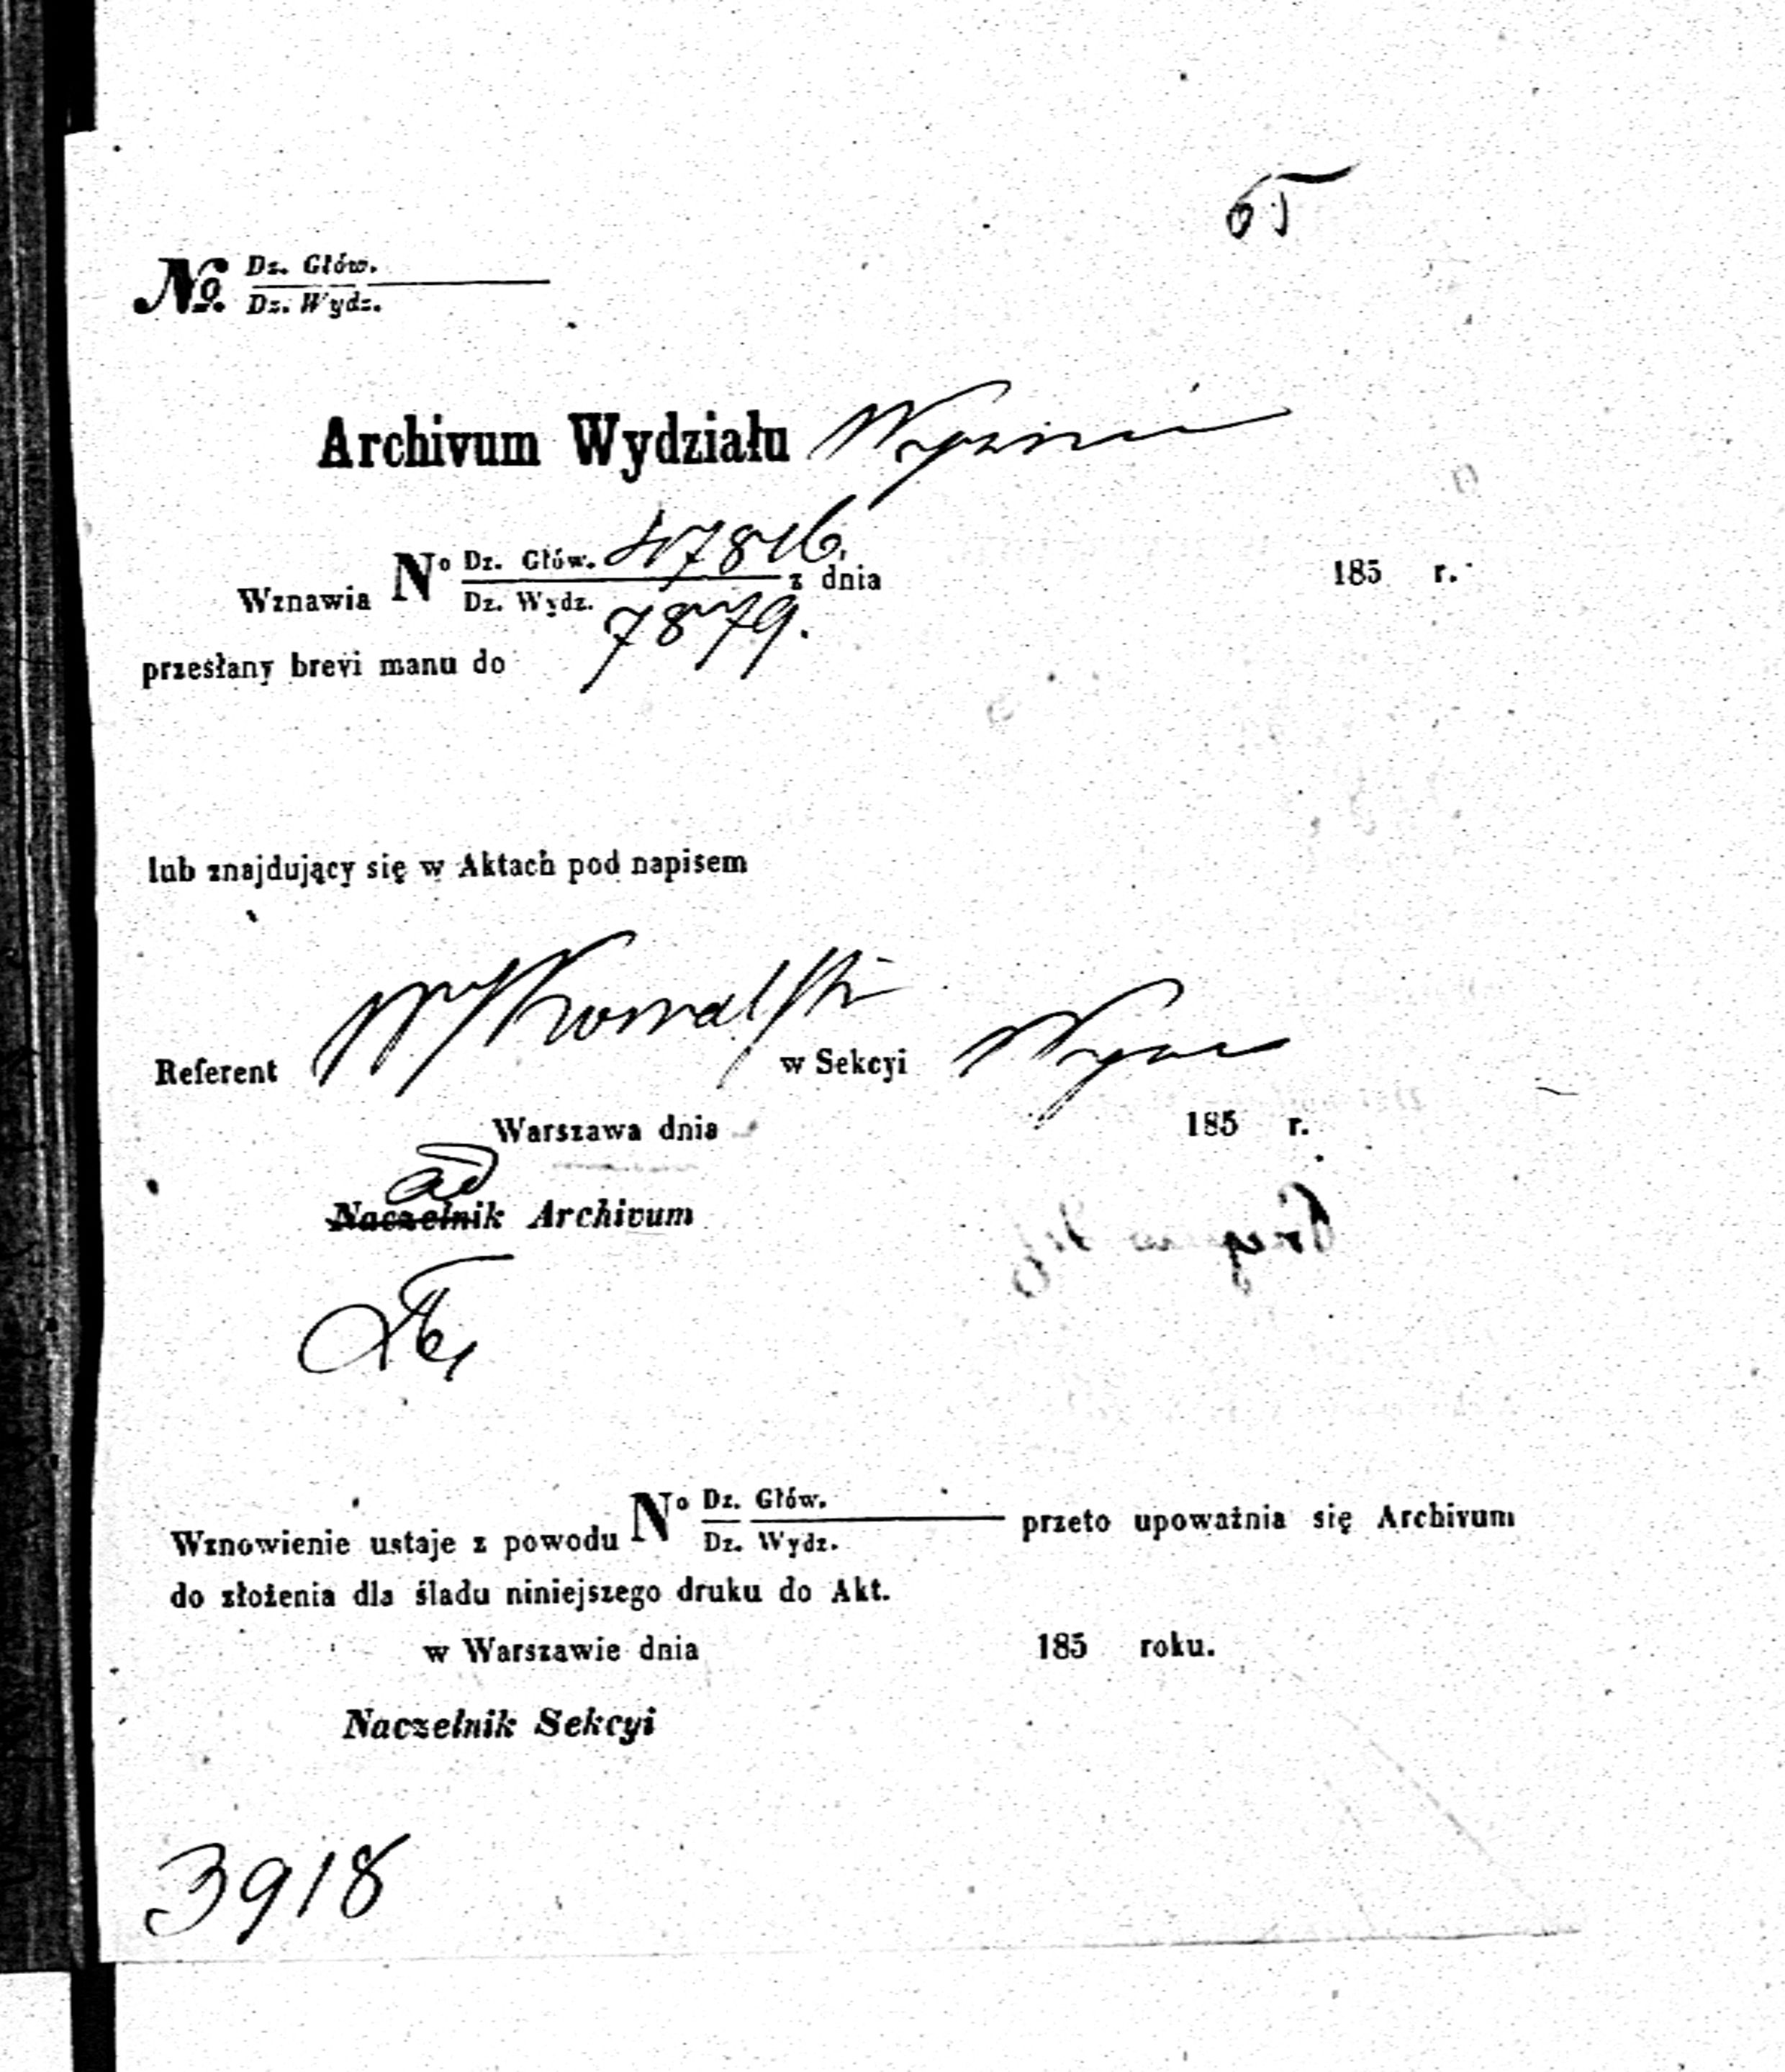 65
No. Dz. Głów.
Dz. Wydz.
Archivum Wydziału
Wznawia No Dz. Głów. 47816. z dnia 185 r.
Dz. Wydz. 7879.
przesłany brevi manu do
lub znajdujący się w Aktach pod napisem
Referent Kowalski w Sekcyi
Warszawa dnia 185 r.
ad
Naczelnik Archivum
Wznowienie ustaje z powodu No Dz. Głów. przeto upoważnia się Archivum
Dz. Wydz.
do złożenia dla śladu niniejszego druku do Akt.
w Warszawie dnia 185 roku.
Naczelnik Sekcyi
3918